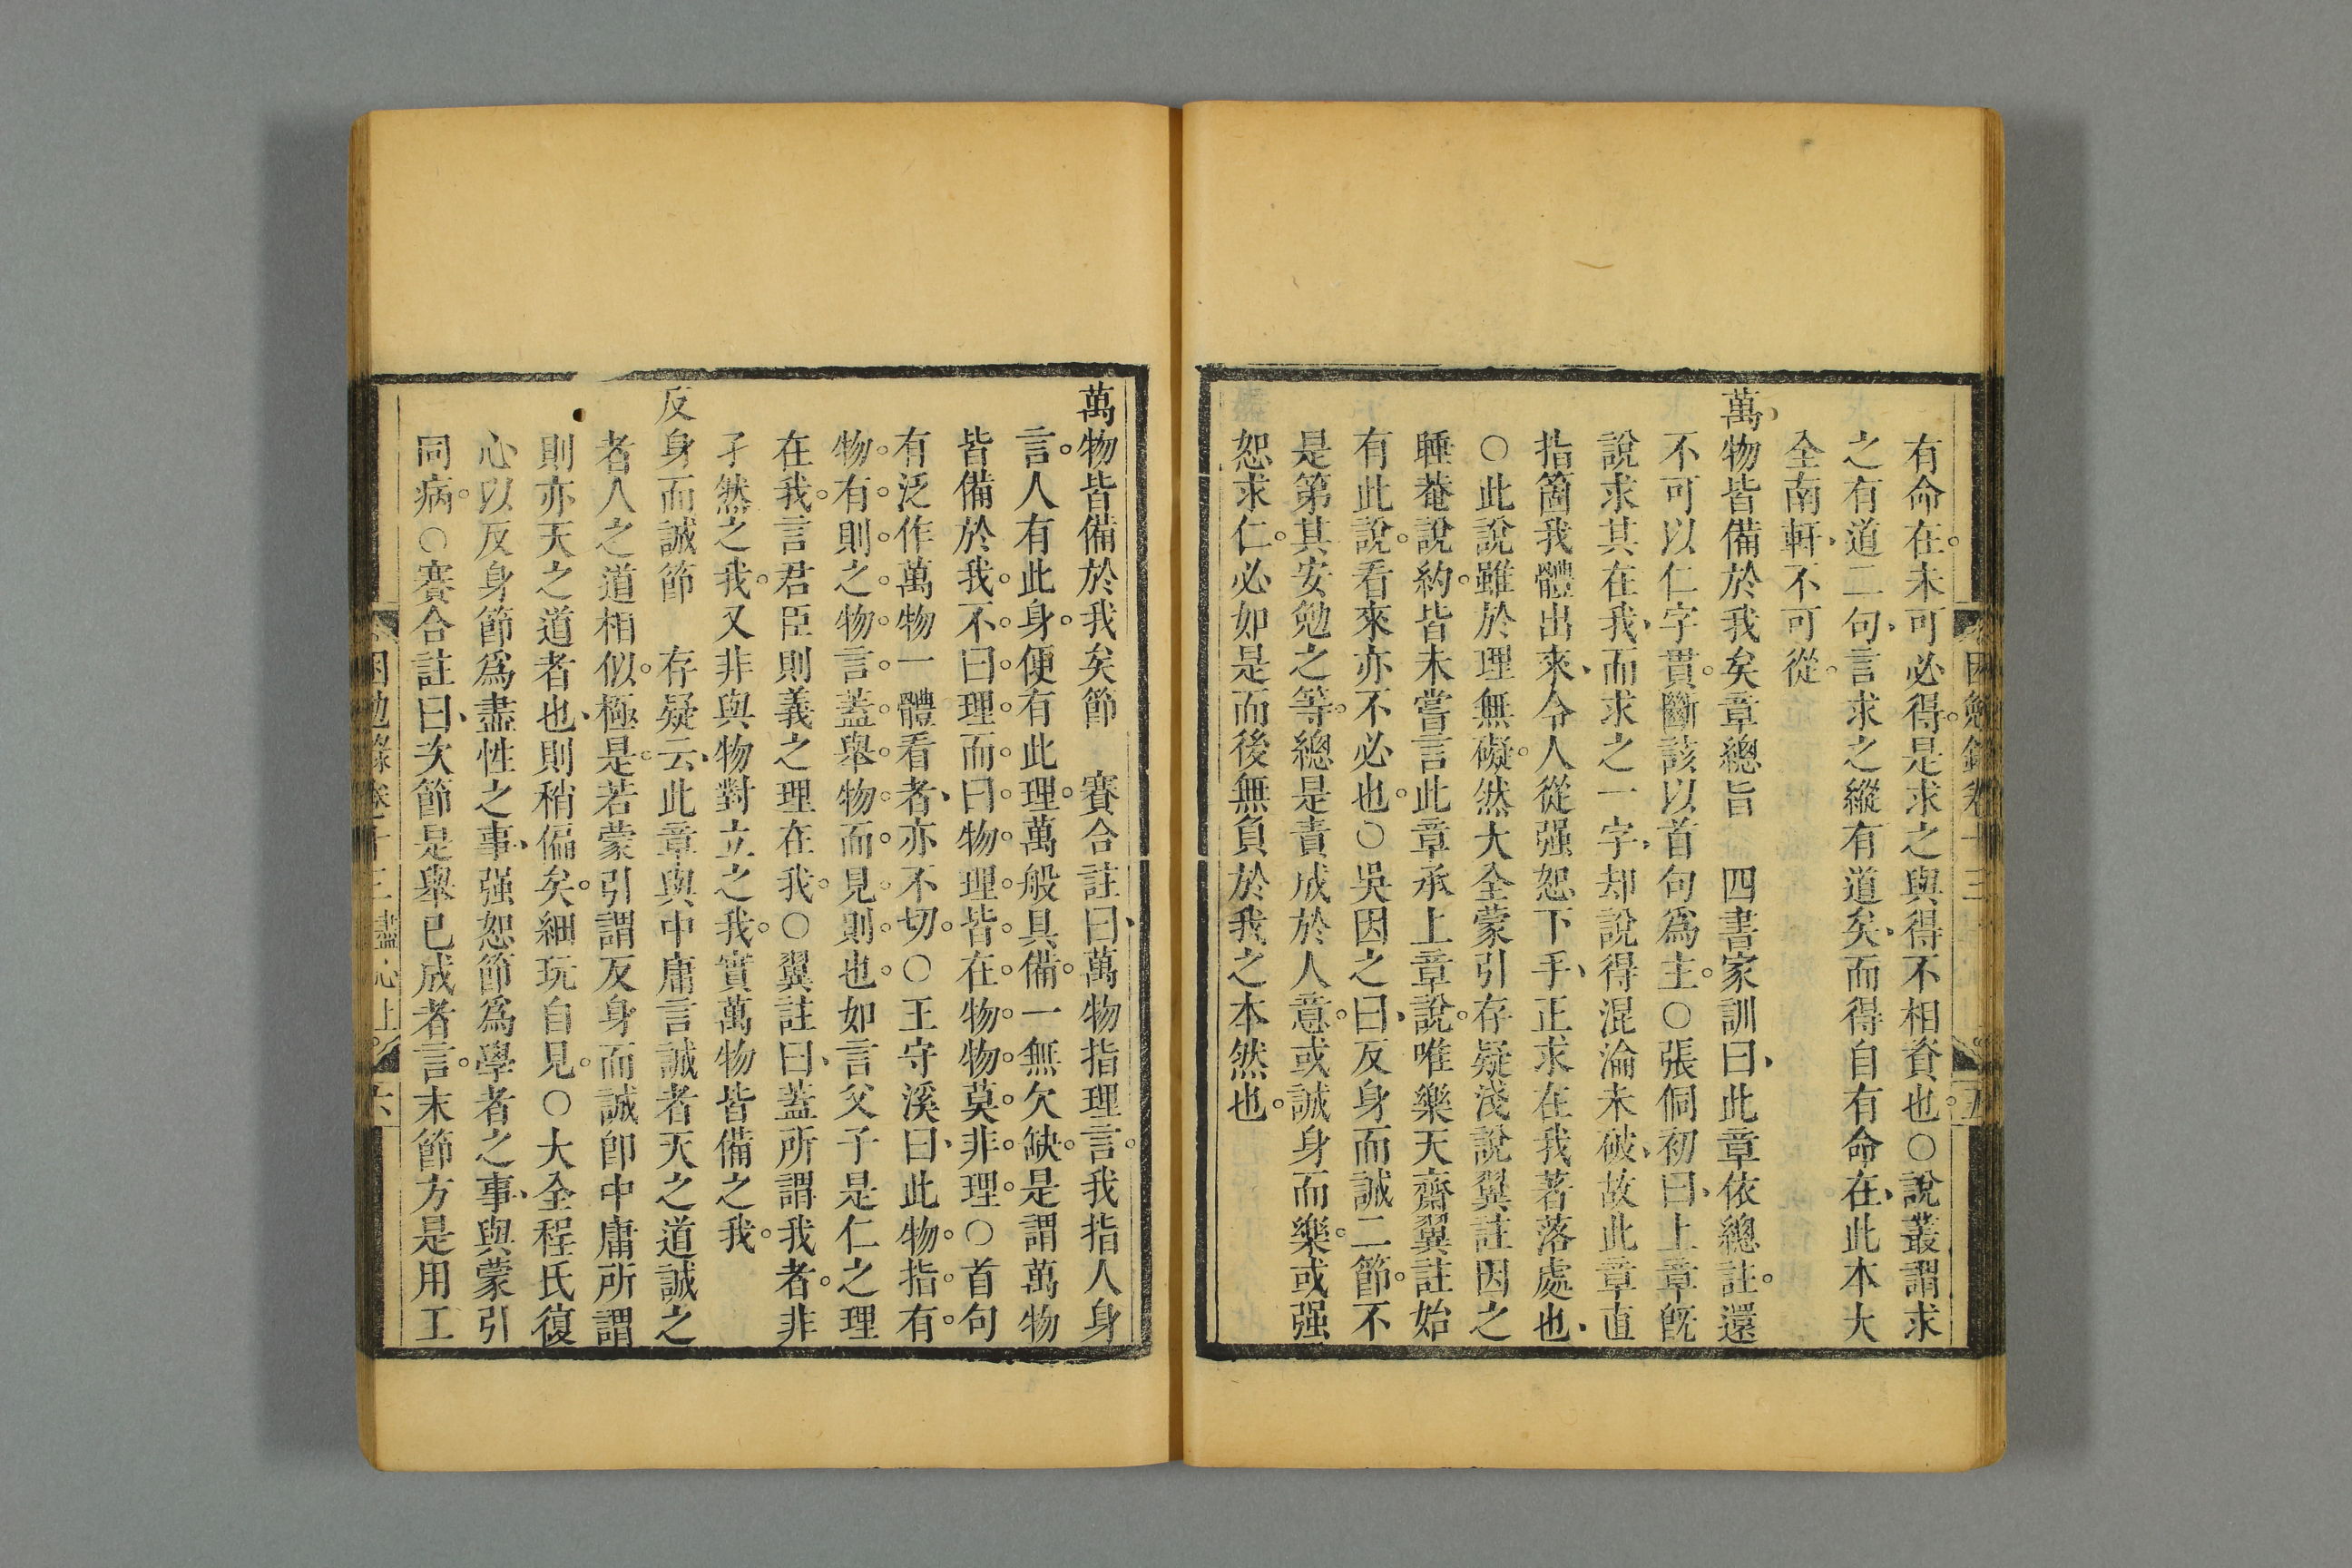 有命在。未可必得。是求之與得不相資也。○說叢謂求
之有道二句、言求之縱有道矣、而得自有命在、此本大
全南軒、不可從。
萬物皆備於我矣章總旨　四書家訓曰、此章依總註。還
不可以仁字貫。斷該以首句爲主。○張侗初曰、上章旣
說求其在我、而求之一字、却說得混淪未破、故此章直
指箇我體出來、令人從强恕下手、正求在我著落處也、
○此說雖於理無礙。然大全蒙引存疑淺說翼註因之
睡菴說約。皆未嘗言此章承上章說。唯樂天齋翼註始
有此說。看來亦不必也。○吳因之曰、反身而誠二節。不
是第其安勉之等。總是責成於人意。或誠身而樂。或强
恕求仁。必如是而後無負於我之本然也。
萬物皆備於我矣節　賽合註曰、萬物指理言。我指人身
言。人有此身。便有此理。萬般具備。一無欠缺。是謂萬物
皆備於我。不曰理而曰物。理皆在物。物莫非理。○首句
有泛作萬物一體看者、亦不切。○王守溪曰、此物指有
物有則之物言。蓋舉物而見則也。如言父子是仁之理
在我。言君臣則義之理在我。○翼註曰、蓋所謂我者。非
孑然之我。又非與物對立之我。實萬物皆備之我。
反身而誠節　存疑云、此章與中庸言誠者天之道誠之
者人之道相似。極是。若蒙引謂反身而誠卽中庸所謂
則亦天之道者也、則稍偏矣。細玩自見。○大全程氏復
心以反身節爲盡性之事、强恕節爲學者之事、與蒙引
同病。○賽合註曰、次節是舉已成者言。末節方是用工
困勉錄卷十三
五
困勉錄卷十三盡心上
六